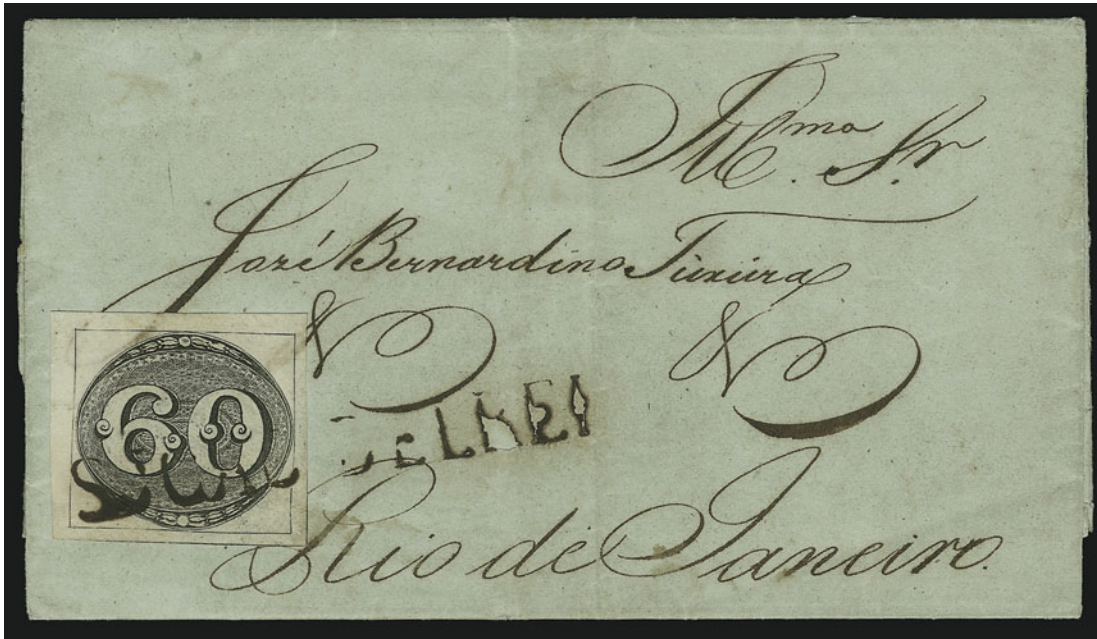 Ill.mo Sr
José Bernardino Teixeira
& &
60
DELREI
Rio de Janeiro